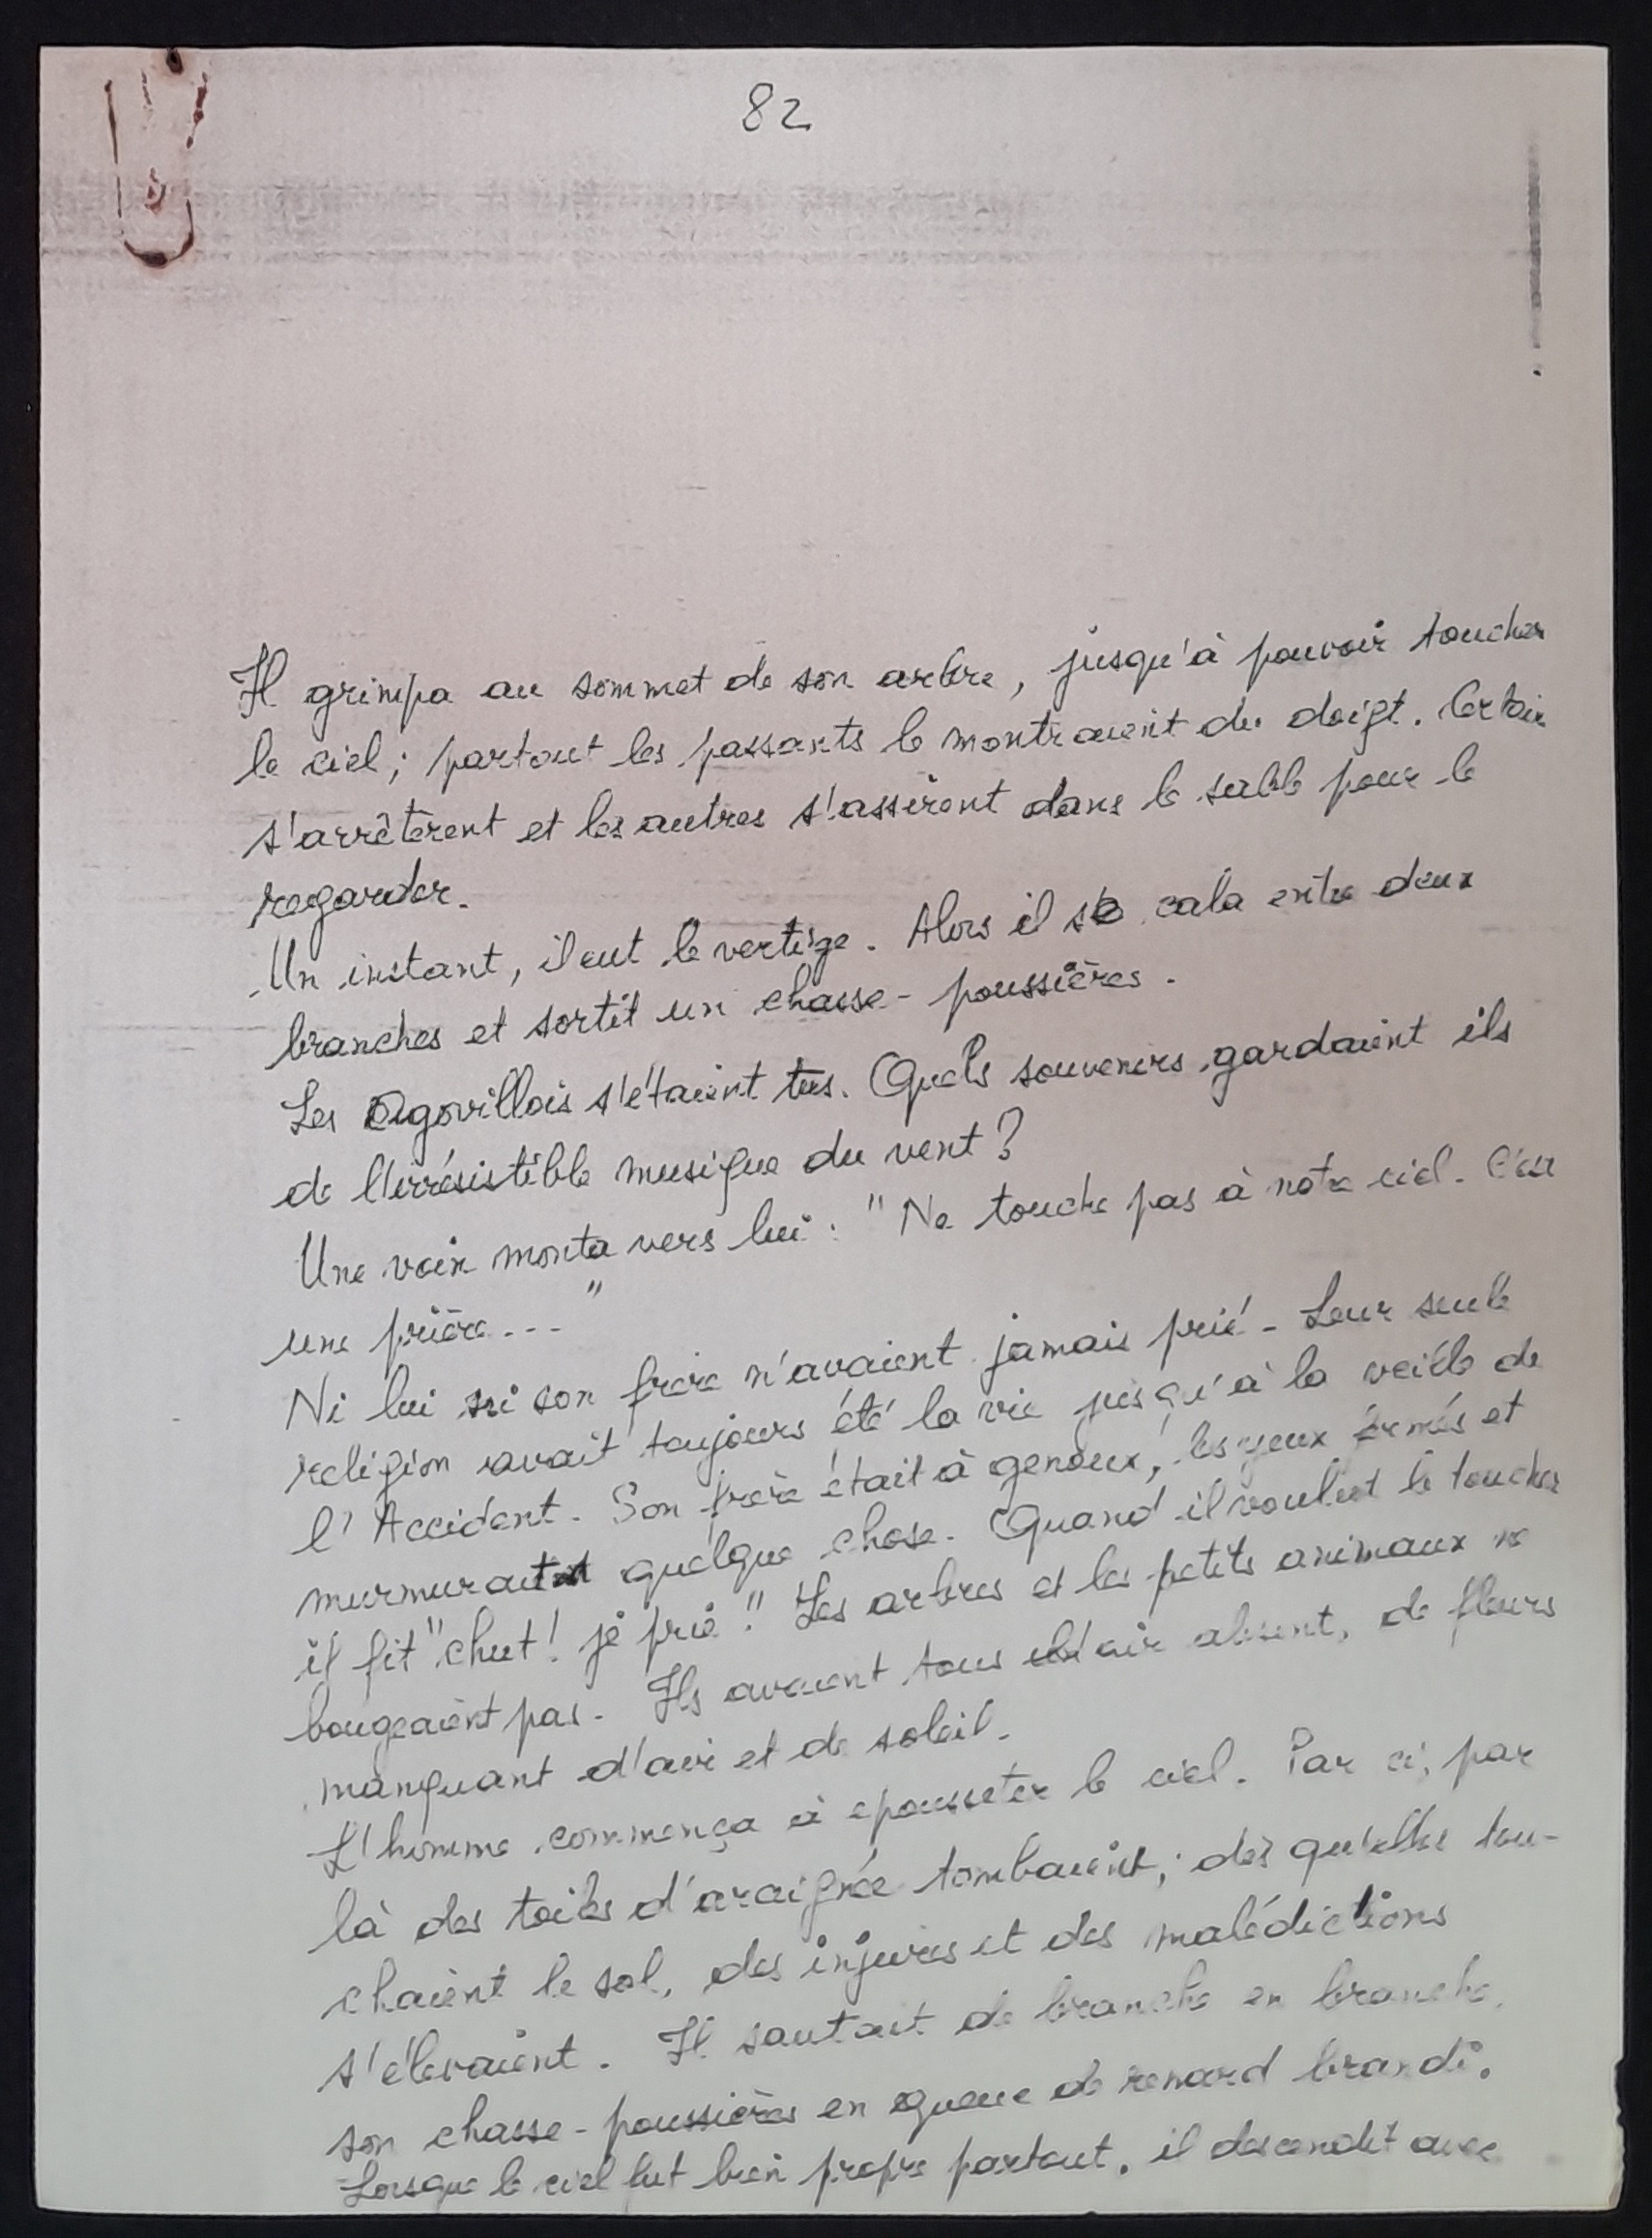 82
Il grimpa au sommet de son arbre, jusqu'à pouvoir toucher
le ciel; partout les passants le montraient du doigt. Certain
s'arrêtèrent et les autres s'assirent dans le sable pour le
regarder.
Un instant, il eut le vertige. Alors il se cala entre deux
branches et sortit un chasse-poussières.
Les Agovillois s'étaient tus. Quels souvenirs gardaient ils
de l'irrésistible musique du vent?
Une voix monta vers lui : "Ne touche pas à notre ciel. C'est
une prière..."
Ni lui ni son frère n'avaient jamais prié - Leur seule
religion avait toujours été la vie jusqu'à la veille de
l'Accident. Son frère était à genoux, les yeux fermés et
murmurait quelque chose. Quand il voulut le toucher
il fit "chut! je prie". Les arbres et les petits animaux ne
bougeaient pas. Ils avaient tous l'air absent, de fleurs
manquant d'air et de soleil.
L'homme commença à epousseter le ciel. Par ci, par
là des toiles d'araignée tombaient; dès qu'elles tou-
chaient le sol, des injures et des malédictions
s'élevaient. Il sautait de branche en branche,
son chasse-poussières en queue de renard brandi.
Lorsque le ciel fut bien propre partout, il descendit avec